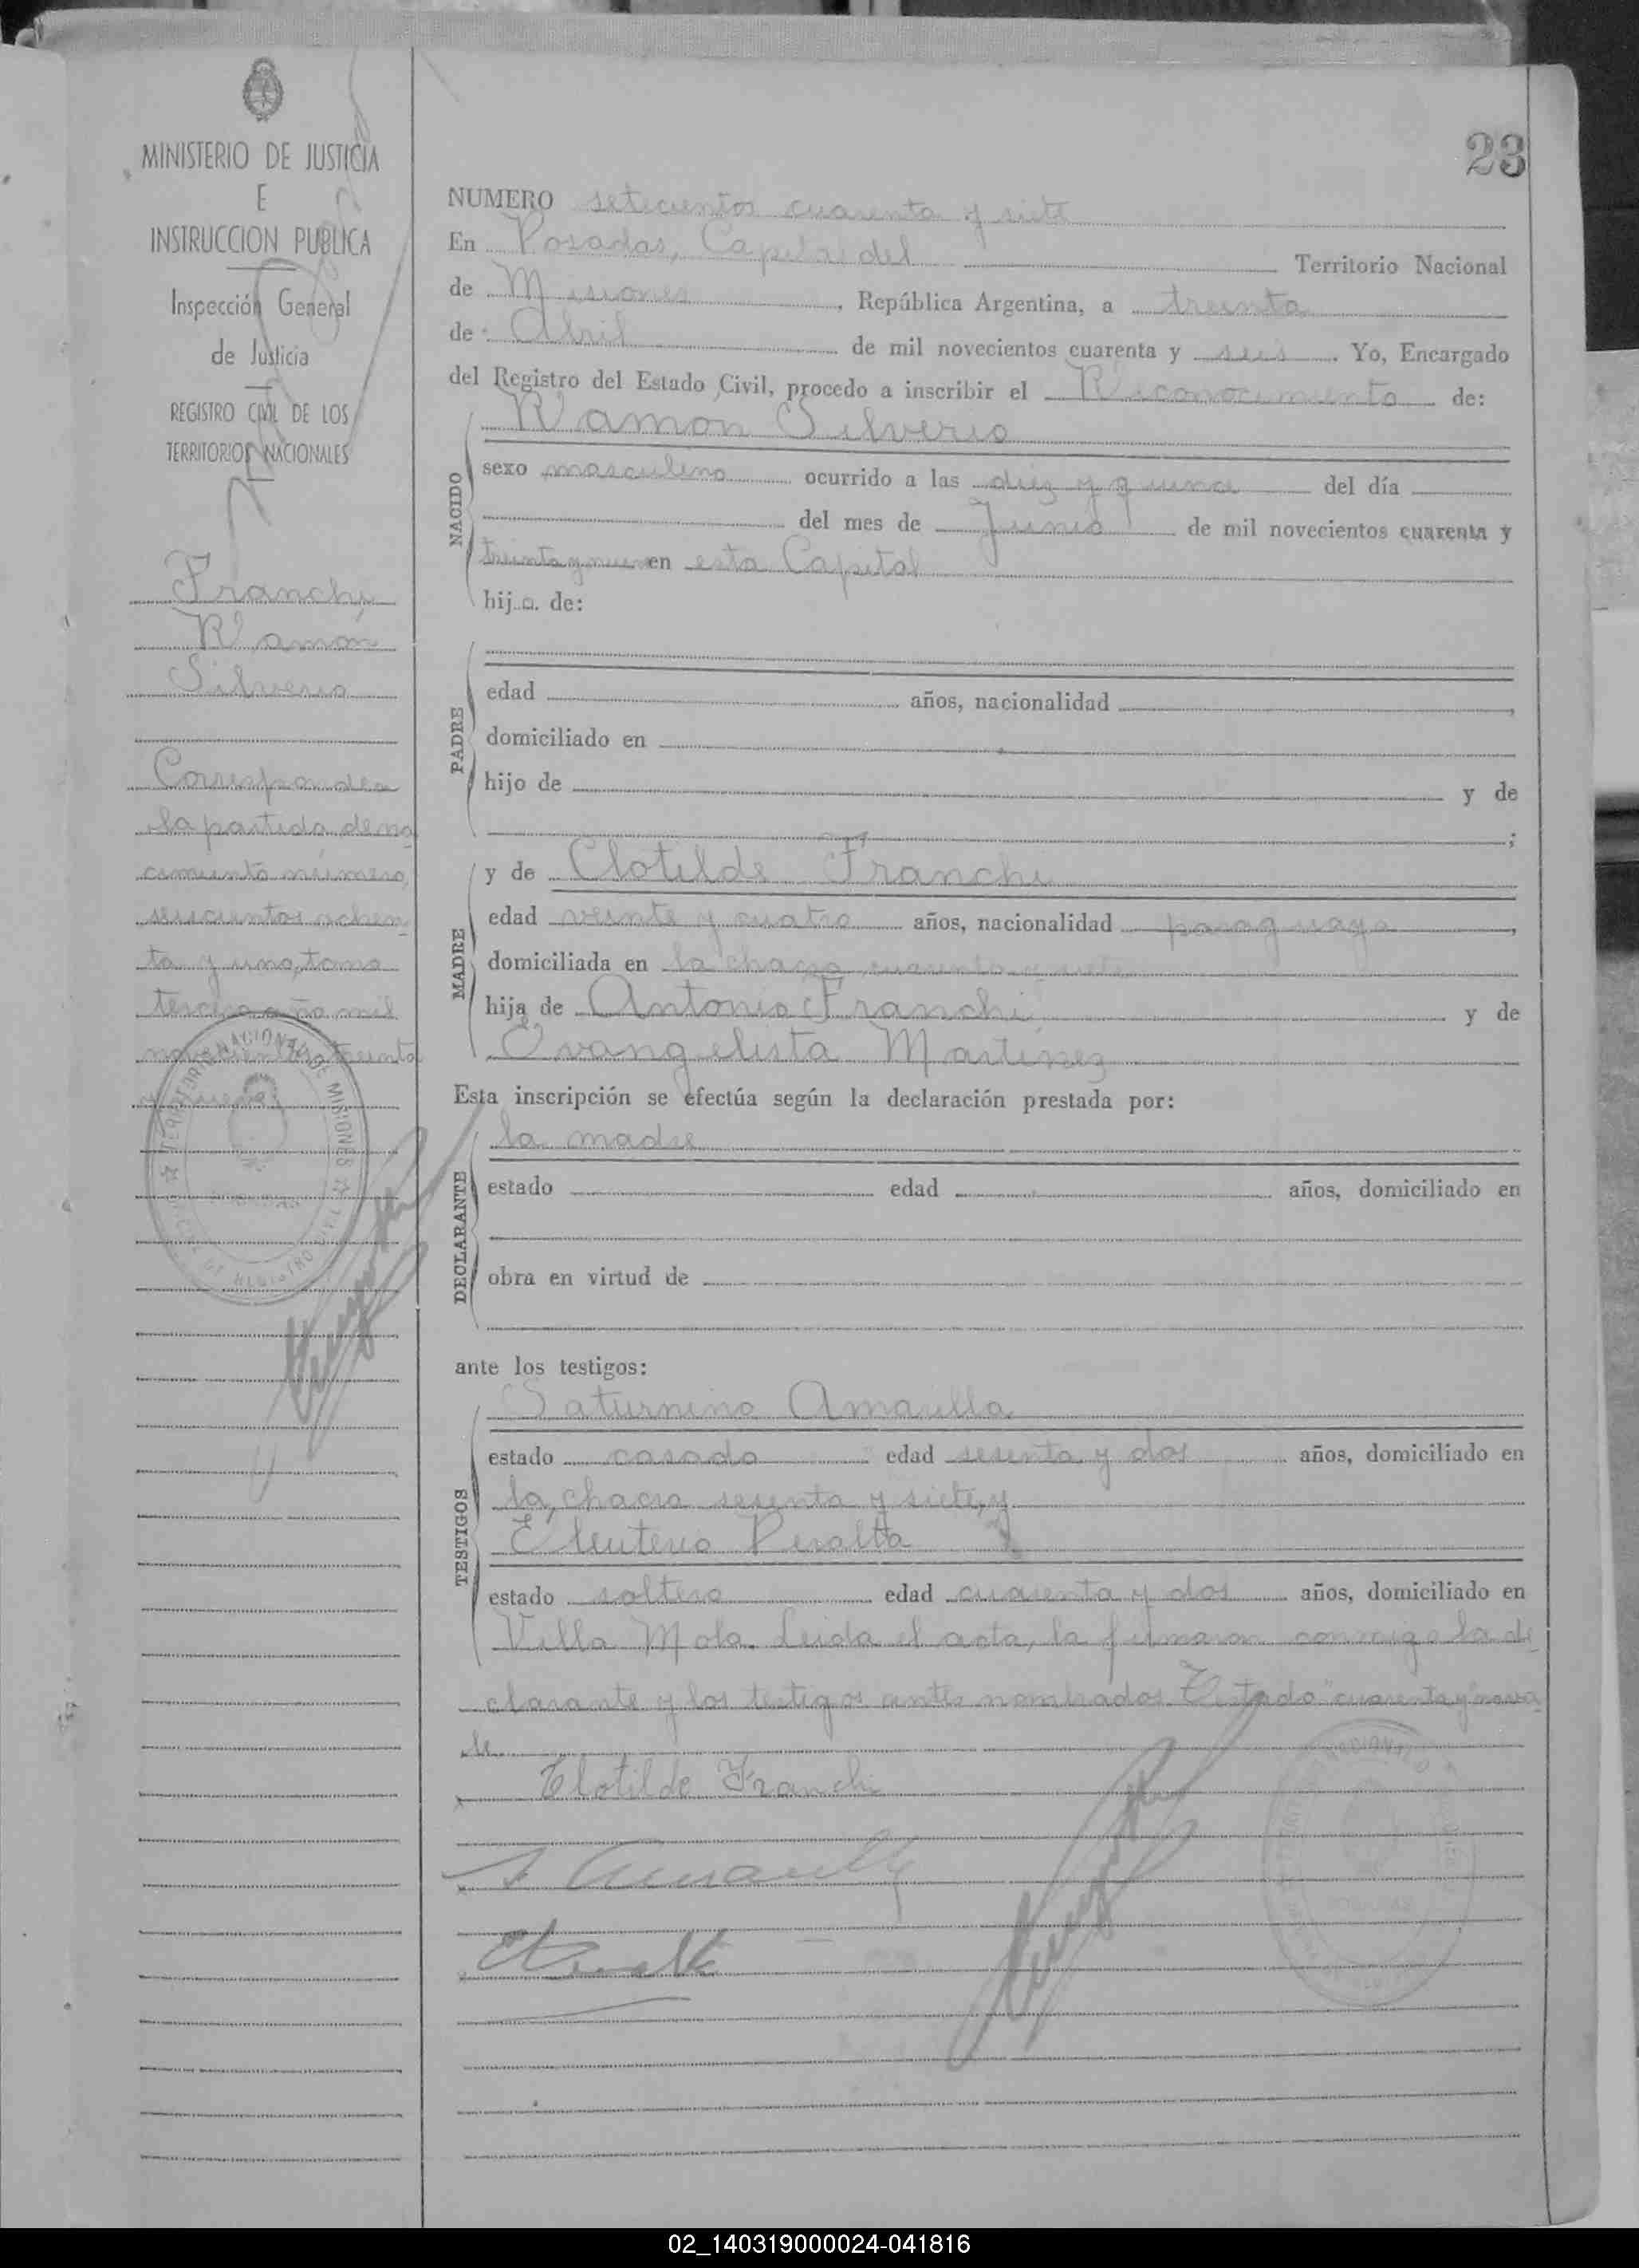 MINISTERIO DE JUSTICIA
E
INSTRUCCION PUBLICA
Inspección General
de Justicia
REGISTRO CIVIL DE LOS
TERRITORIOS NACIONALES
Franchi
Ramon
Silverio
Corresponde a
la partida de na
cimiento número
seiscientos ochen
ta y uno, tomo
tercero año mil
novecientos treinta
y nueve
23
NUMERO setecientos cuarenta y siete
En Posadas, Capital del Territorio Nacional
de Misiones, República Argentina, a treinta
de Abril de mil novecientos cuarenta y seis. Yo, Encargado
del Registro del Estado Civil, procedo a inscribir el Reconocimiento de:
Ramon Silverio
NACIDO
sexo masculino ocurrido a las del día
del mes de Junio de mil novecientos cuarenta y
treinta y nueve en esta Capital
hijo de:
PADRE
edad años, nacionalidad ,
domiciliado en
hijo de y de
;
MADRE
y de Clotilde Franchi
edad veinte y cuatro años, nacionalidad paraguaya,
domiciliada en la chacra cuarenta y siete
hija de Antonio Franchi y de
Evangelista Martinez
Esta inscripción se efectúa según la declaración prestada por:
DECLARANTE
la madre
estado edad años, domiciliado en
obra en virtud de
ante los testigos:
TESTIGOS
Saturnino Amarilla
estado casado edad sesenta y dos años, domiciliado en
la chacra sesenta y siete, y
Eleuterio Peralta
estado soltero edad cuarenta y dos años, domiciliado en
Villa Mola. Leida el acta, la firmaron conmigo la de
clarante y los testigos antes nombrados. Testado "cuarenta y" no va
le
Clotilde Franchi
02_140319000024-041816